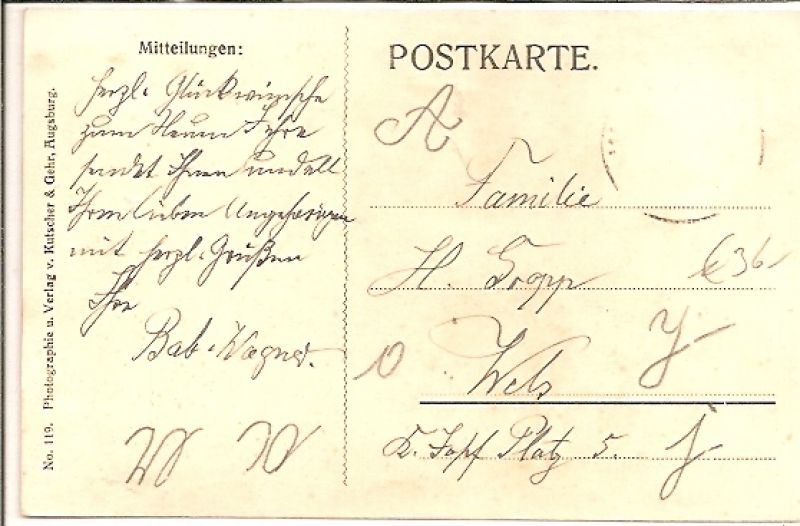 Mitteilungen:
Herzl. Glückwünsche
zum Neuen Jahre
sendet Ihnen und all
Ihren lieben Angehörigen
mit herzl. Grüßen
Ihre
Bab. Wagner.
No. 119. Photographie u. Verlag v. Kutscher & Gehr, Augsburg.
POSTKARTE.
A
Familie
H.
€ 36-
Wels
Platz 5.